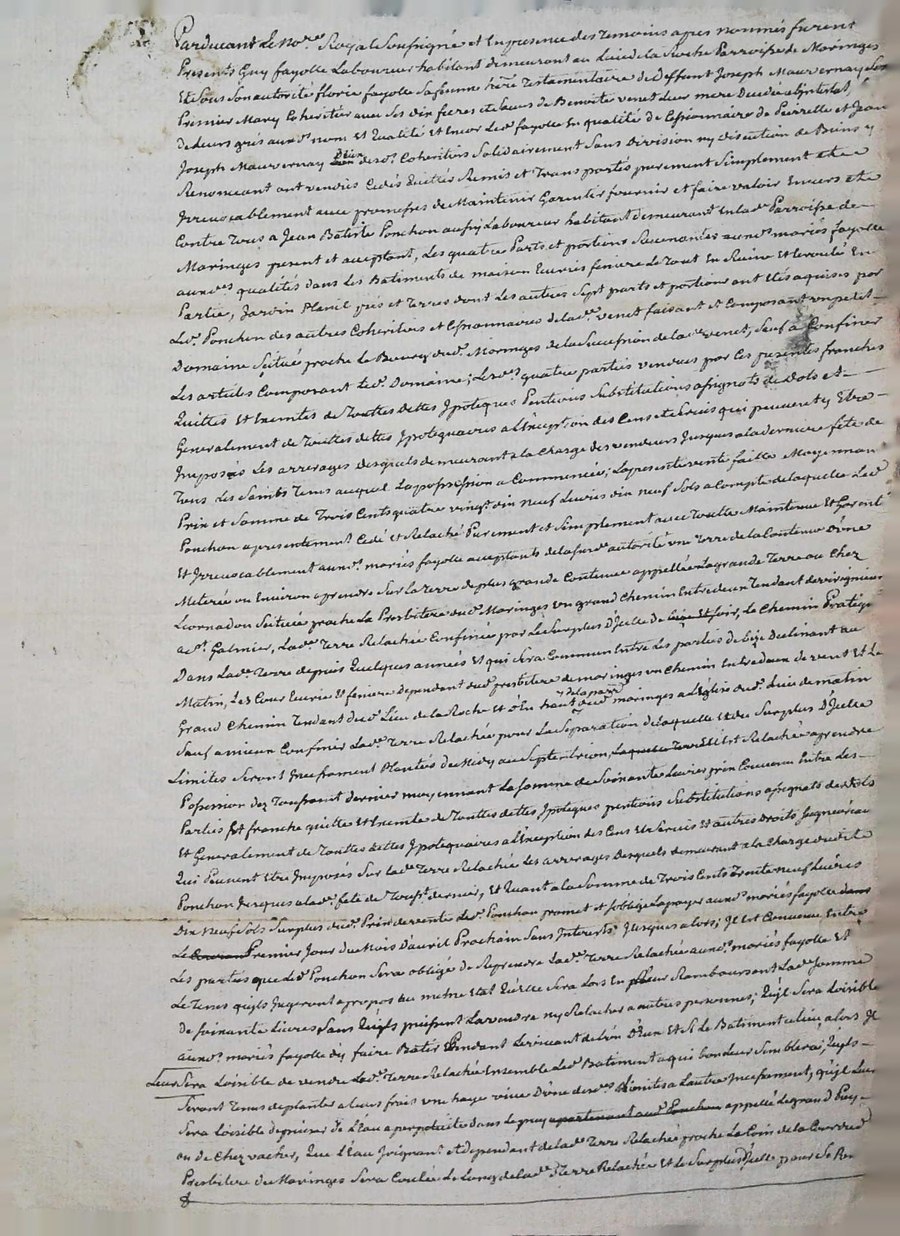 Pardevant Le No.re Royal Soussigné et En presence des Temoins apres nommés furent
Presents Guy fayolle Laboureur habitant demeurant au Lieu de la Roche Parroisse de Maringes
Et Sous Son autorité florie fayolle Sa femme here Testamentaire de Deffunt Joseph Mauvernay Son
Premier Mary Coheritier avec Ses dix freres et Sœurs de Benoite venet Leur mere Decedée abintestat,
de Leurs grés aux.d nom Et Qualité Et Encor Led. fayolle En qualité de Cessionnaire de Pierrette et Jean
Joseph Mauvernay Deux de Ses Coheritiers Solidairement Sans Division ny Discution de Biens y
Renonceant ont vendus Cedés Quittés Remis et Transportés purement Simplement et
Irrevocablement avec promesses de Maintenir Garentir fournir et faire valoir Envers et
Contre Tous a Jean Batiste Ponchon aussy Laboureur habitant demeurant En lad. Parroisse de
Maringes present et acceptant, Les quatres Parts et portions advenantes aux.d mariés fayolle
aux.des qualités dans Les Batiments de maison Ecuries feniere Le Tout En Ruine Et Ecroulé En
Partie, Jardin Plassil prés et Terres dont Les autres Sept parts et portions ont Etés aquises par
Led. Ponchon des autres Coheritiers et Cessionnaires de lad. venet faisant et Composant un petit
Domaine Scitué proche Le Bourg dud. Maringes de la Succession de lad. venet, Sauf a Confiner
Les articles Composant Led. Domaine; Lesd. quatre parties vendues par Ces presentes franches
Quittes Et Exemtes de Touttes dettes Ypoteques Pentions Substitutions assignots de Dots et
Generalement de Touttes dettes Ypotequaires a L'Exception des Cens et Servis qui peuvent y Etre
Imposés Les arrerages desquels demeurant a la Charge des vendeurs Jusques a la derniere fête de
Tous Les Saints Tems auquel La possession a Commencée; La presente vente faitte Moyennant
Prix et Somme de Trois Cents quatre vingt dix neuf Livres dix neuf Sols a Compte de laquelle Led.
Ponchon a presentement Cedé et Relaché Purement et Simplement avec Toutte Maintenue Et Garentie
Et Irrevocablement aux.d mariés fayolle acceptants de la susd. autorité une Terre de la Contenue D'une
Meterée ou Environ a prendre Sur la Terre de plus grande Contenue appellée La grande Terre ou Chez
Scituée proche La Presbitere dud. Maringes un grand Chemin Entredeux Tendant de
a St. Galmier, Lad. Terre Relachée Confinée par Le Surplus D'Icelle de et soir, Le Chemin Pratiqué
Dans Lad. Terre depuis Quelques années Et qui Sera Commun Entre Les parties de Declinant au
Matin, Les Cour Ecurie Et feniere dependant dud. presbitere de maringes un Chemin Entredeux de vent Et Le
Grand Chemin Tendant dud. Lieu de la Roche Et d'En haut de la parr.sse dud. maringes a L'Eglise dud. Lieu de matin
Sauf a mieux Confiner Lad. Terre Relachée pour La Separation de laquelle Et du Surplus D'Icelle
Limites Seront Incessament Plantées du Midy au Septentrion, Laquelle Terre Est Relachée a prendre
Possession dez Toussaint dernier moyennant La Somme de Soixante Livres prix Convenu Entre Les
Parties Et franche quitte Et Exemte de Touttes dettes Ypoteques pentions Substitutions assignats de Dots
Et Generalement de Touttes dettes Ypotequaires a L'Exception des Cens Et Servis Et autres Droits Seigneuriaux
Qui Peuvent Etre Imposés Sur Lad. Terre Relachée Les arrerages Desquels demeurant a la Charge dudit
Ponchon Jusques a lad. fête de Touss.t dernier, et Quant a la Somme de Trois Cents Trente neuf Livres
Dix Neuf Sols Surplus dud. Prix de vente Led. Ponchon promet et S'oblige La payer aux.d mariés fayolle dans
Le Premier Jour du Mois D'avril Prochain Sans Interets Jusques alors; Il Est Convenu Entre
Les parties que Led. Ponchon Sera obligé de Reprendre Lad. Terre Relachée aux.d mariés fayolle Et
Le Tems qu'ils Jugeront a propos au même Etat Qu'Elle Sera Lors En Leur Remboursant Lad. Somme
de Soixante Livres, Sans Qu'ils puissent La vendre ny Relacher a autres personnes; Qu'il Sera Loisible
aux.d mariés fayolle d'y faire Bâtir Pendant Le vivant de L'un D'Eux Et Si Le Batiment a Lieu, alors Il
Leur Sera Loisible de vendre Lad. Terre Relachée Ensemble Led. Batiment a qui bon Leur Semblera, Qu'ils
Seront Tenus de planter a Leurs frais une haye vive D'une desd. Limites a L'autre Incessament, qu'il Leur
Sera Loisible de puiser de L'Eau a perpetuité dans Le puy apartenant aud. Ponchon appellé Le grand Puy
ou de Chez vacher, Que L'Eau Joignant et dependant de lad. Terre Relachée proche Le Coin de la Cour dud.
Presbitere de Maringes Sera Coulée Le Long de lad. Terre Relachée Et Le Surplus D'Icelle pour Se